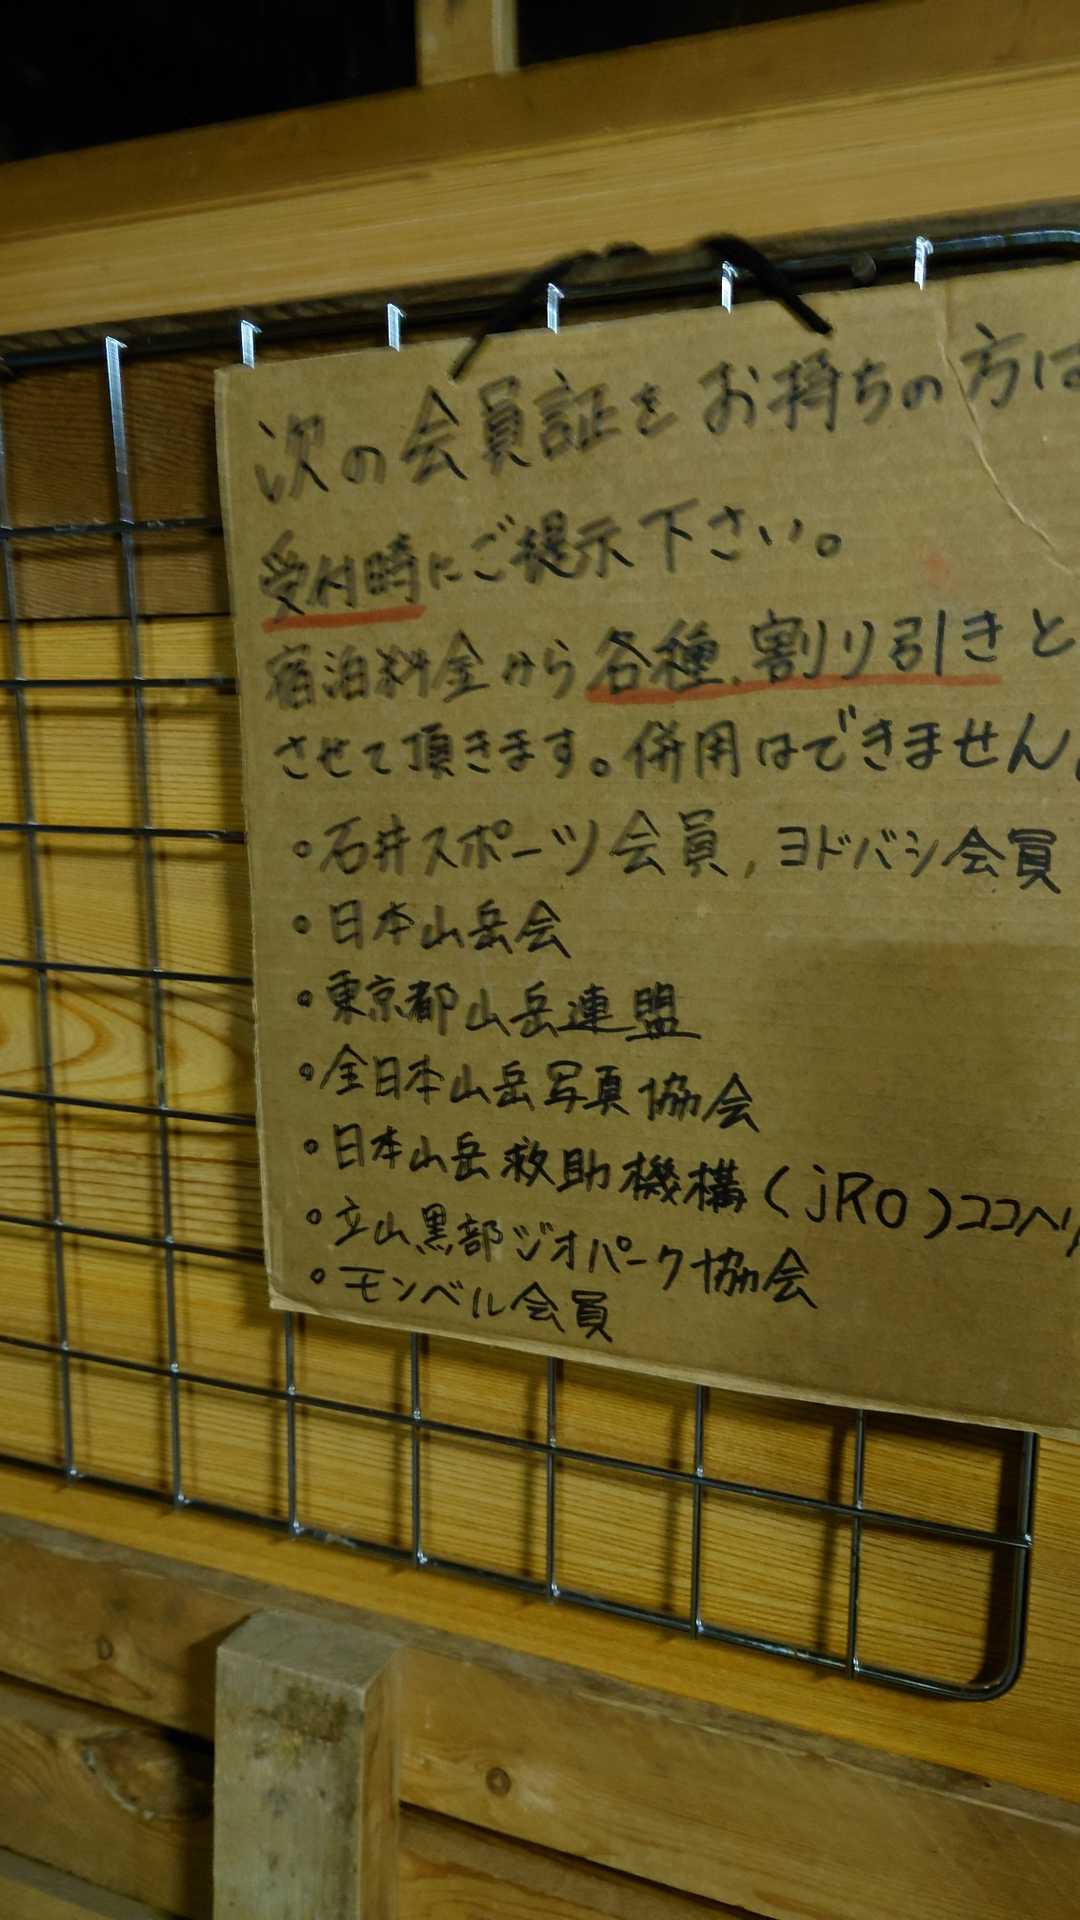 次の会員証をお持ちの方は
受付時にご提示下さい。
宿泊料金から各種、割り引きと
させて頂きます。併用はできません。
・石井スポーツ会員, ヨドバシ会員
・日本山岳会
・東京都山岳連盟
・全日本山岳写真協会
・日本山岳救助機構(jRO)ココヘリ
・立山黒部ジオパーク協会
・モンベル会員